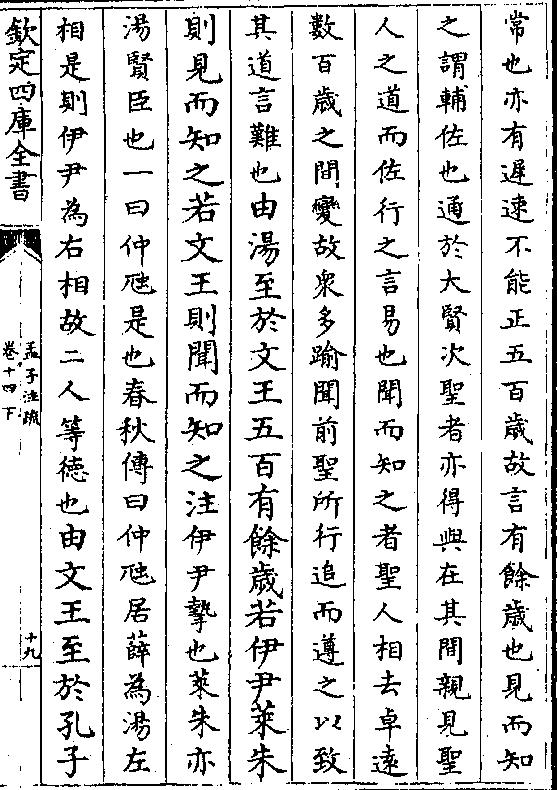 常也亦有遲速不能正五百歲故言有餘歲也見而知
之謂輔佐也通於大賢次聖者亦得與在其間親見聖
人之道而佐行之言易也聞而知之者聖人相去卓遠
數百歲之間變故衆多踰聞前聖所行追而遵之以致
其道言難也由湯至於文王五百有餘歲若伊尹萊朱
則見而知之若文王則聞而知之注伊尹摯也萊朱亦
湯賢臣也一曰仲虺是也春秋傳曰仲虺居薛為湯左
相是則伊尹為右相故二人等德也由文王至於孔子
欽定四庫全書
孟子注疏
卷十四下
十九